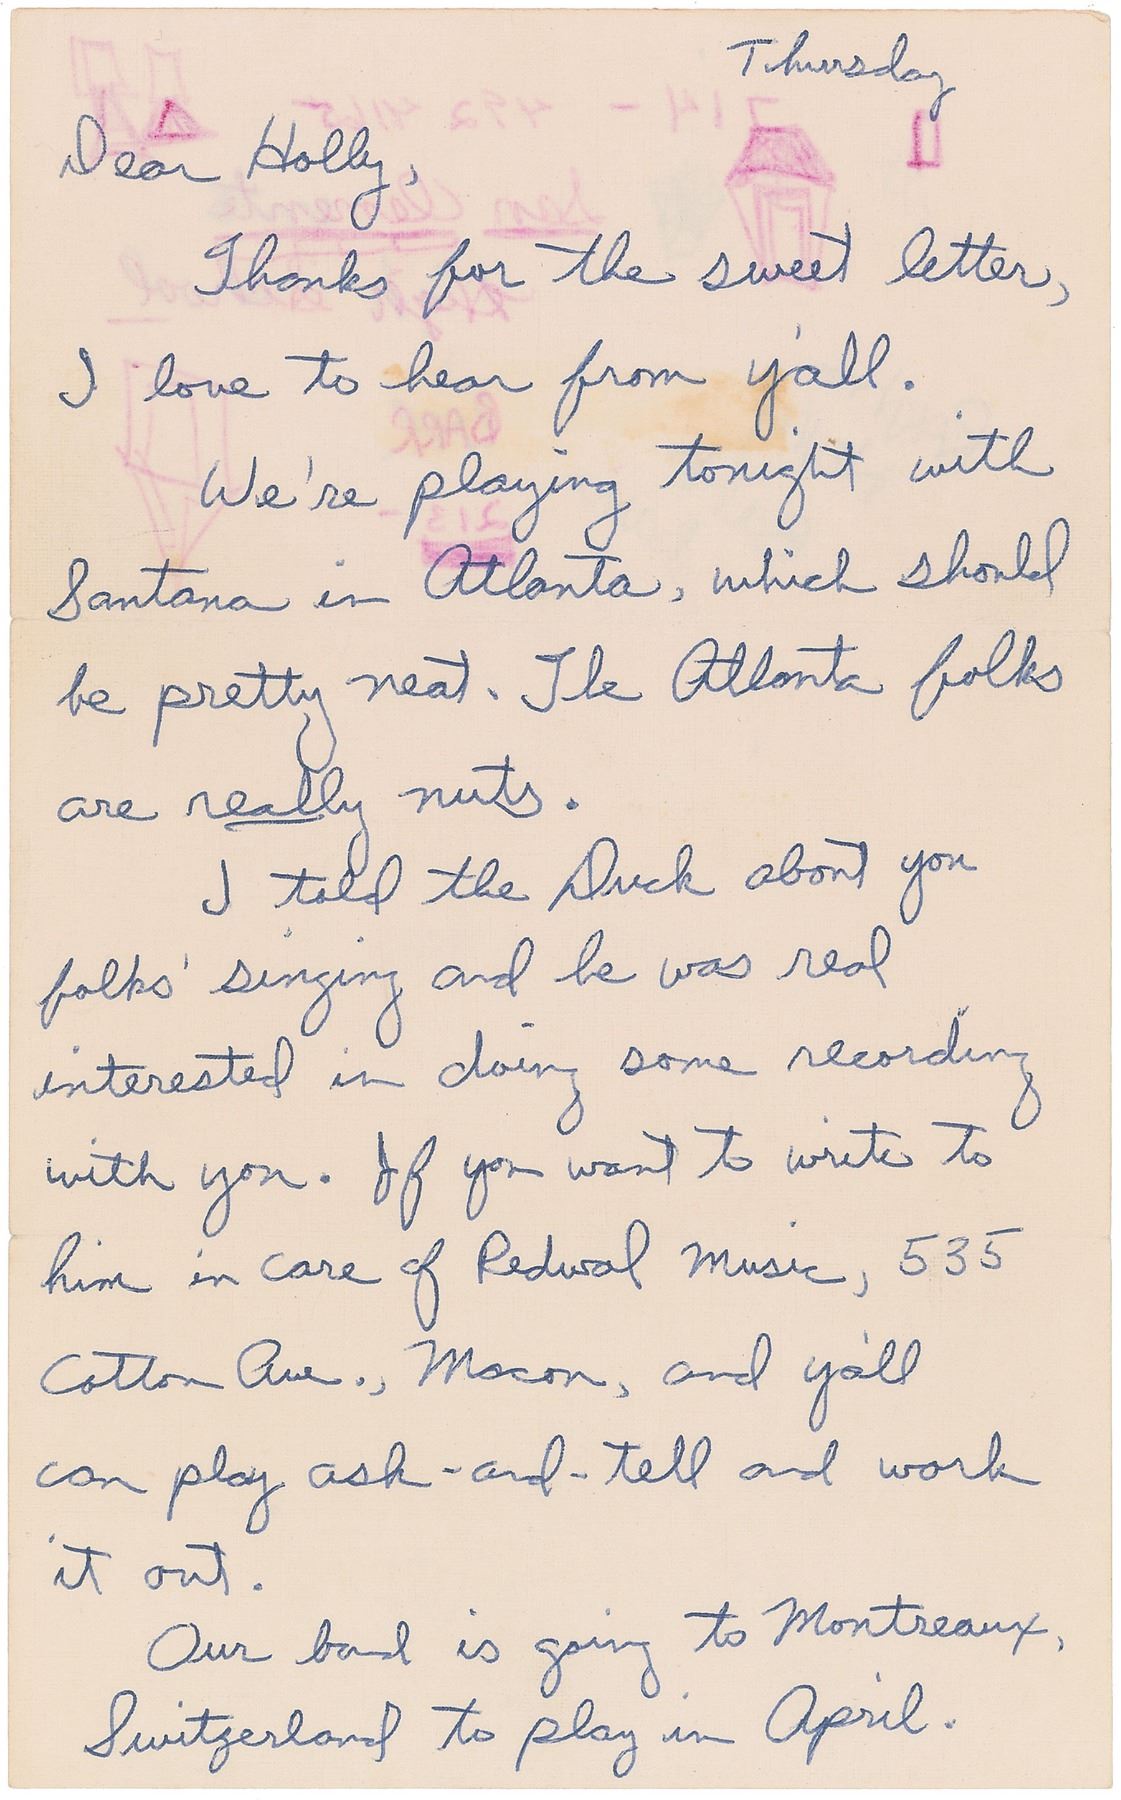 Thursday
Dear Holly,
Thanks for the sweet letter,
I love to hear from y'all.
We're playing tonight with
Santana in Atlanta, which should
be pretty neat. The Atlanta folks
are really nuts.
I told the Duck about you
folks' singing and he was real
interested in doing some recording
with you. If you want to write to
him in care of Redwal Music, 535
Cotton Ave., Macon, and y'all
can play ask-and-tell and work
it out.
Our band is going to Montreaux,
Switzerland to play in April.
714 - 492 4165
San Clemente
BARR
213-